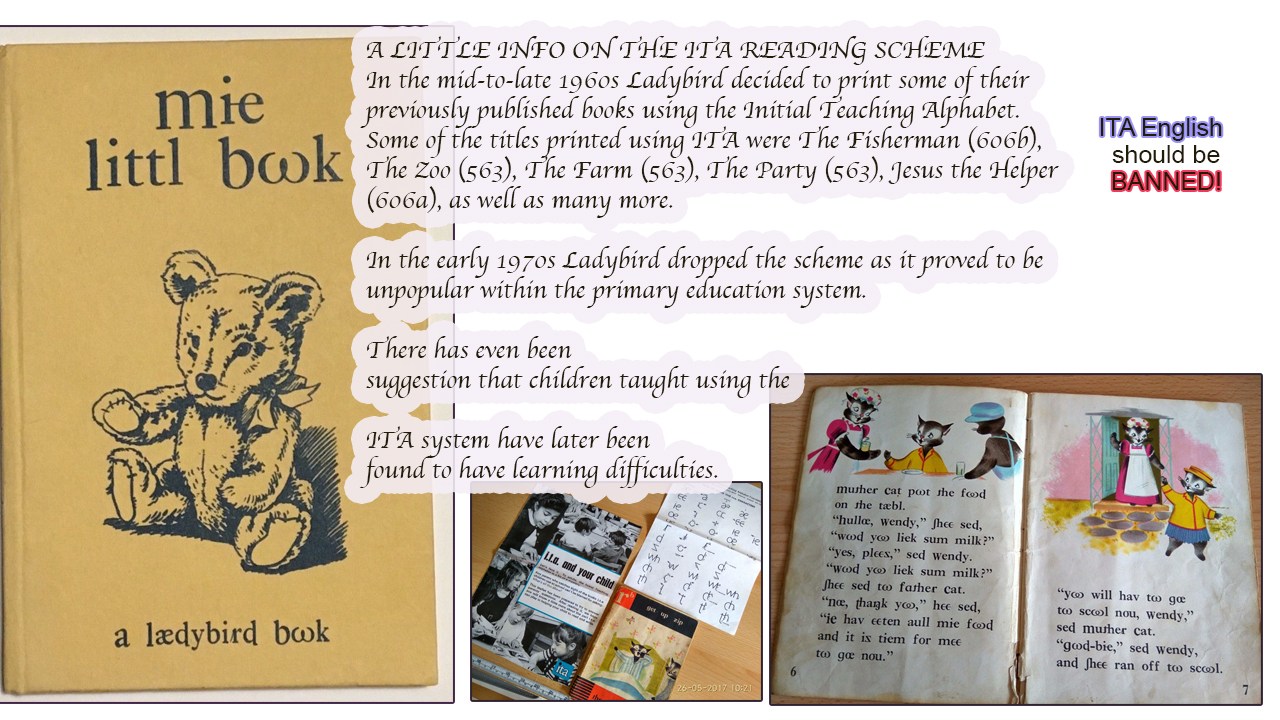 mie
littl bꞷk
a lædybird bꞷk
A LITTLE INFO ON THE ITA READING SCHEME
In the mid-to-late 1960s Ladybird decided to print some of their
previously published books using the Initial Teaching Alphabet.
Some of the titles printed using ITA were The Fisherman (606b),
The Zoo (563), The Farm (563), The Party (563), Jesus the Helper
(606a), as well as many more.
In the early 1970s Ladybird dropped the scheme as it proved to be
unpopular within the primary education system.
There has even been
suggestion that children taught using the
ITA system have later been
found to have learning difficulties.
ITA English
should be
BANNED!
i.t.a. and your child
get up zip
ita
26-05-2017 10:21
muther cat pot the fꞷd
on the tæbl.
“hullœ, wendy,” ʃhee sed,
“wꞷd yꞷ liek sum milk?”
“yes, pleeƨ,” sed wendy.
“wꞷd yꞷ liek sum milk?”
ʃhee sed tꞷ father cat.
“nœ, thaŋk yꞷ,” hee sed,
“ie hav eeten aull mie fꞷd
and it is tiem for mee
tꞷ gœ nou.”
6
“yꞷ will hav tꞷ gœ
tꞷ scꞷl nou, wendy,”
sed muther cat.
“gꞷd-bie,” sed wendy,
and ʃhee ran off tꞷ scꞷl.
7